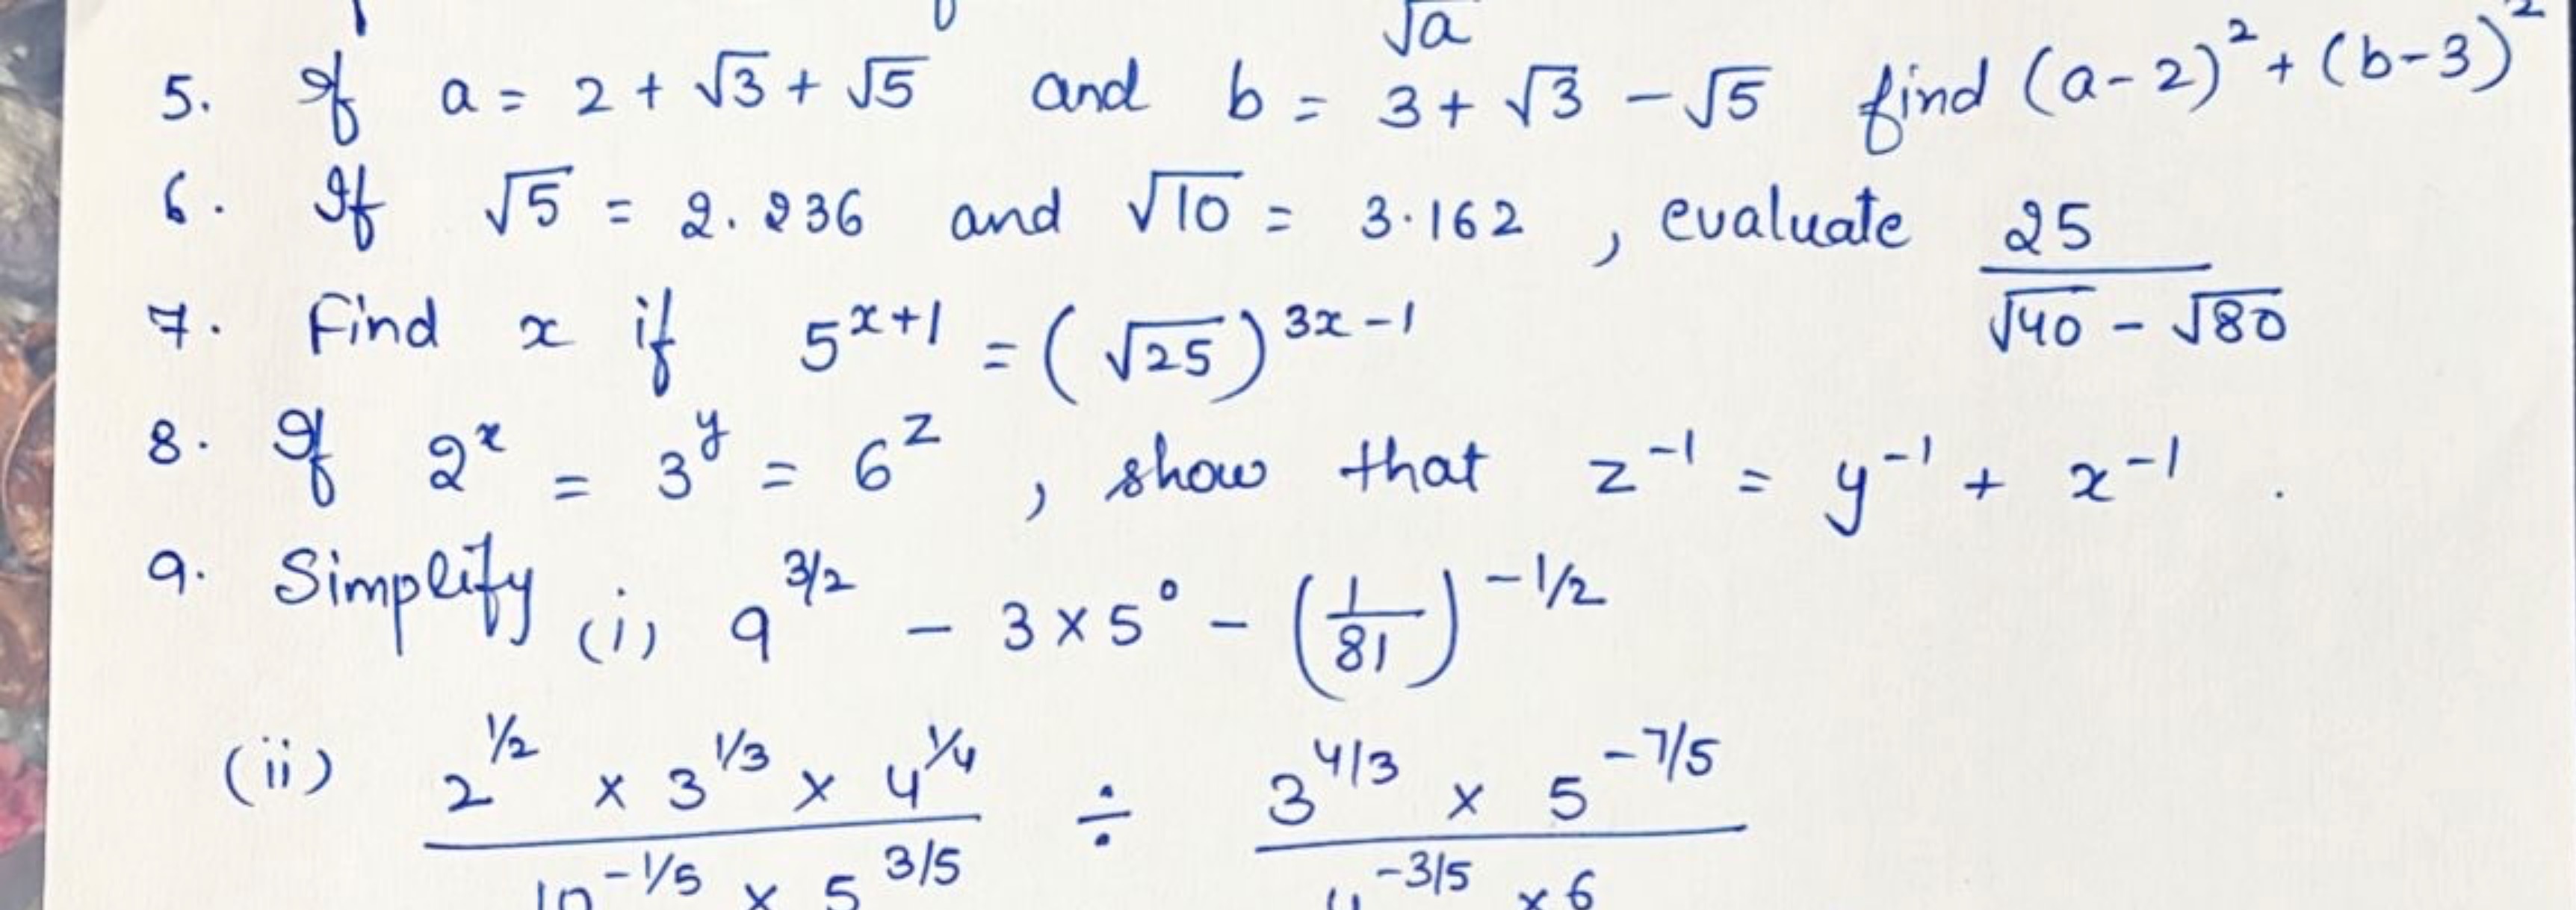 √a
5. If a = 2 + √3 + √5 and b = 3 + √3 - √5 find (a-2)² + (b-3)²
6. If √5 = 2.236 and √10 = 3.162, evaluate 25/(√40 - √80)
7. Find x if 5^(x+1) = (√25)^(3x-1)
8. If 2^x = 3^y = 6^z, show that z^-1 = y^-1 + x^-1.
9. Simplify (i) 9^(3/2) - 3 × 5° - (1/81)^(-1/2)
(ii) 2^(1/2) × 3^(1/3) × 4^(1/4) ÷ 3^(4/3) × 5^(-7/5)
10^(-1/5) × 5^(3/5) 4^(-3/5) × 6